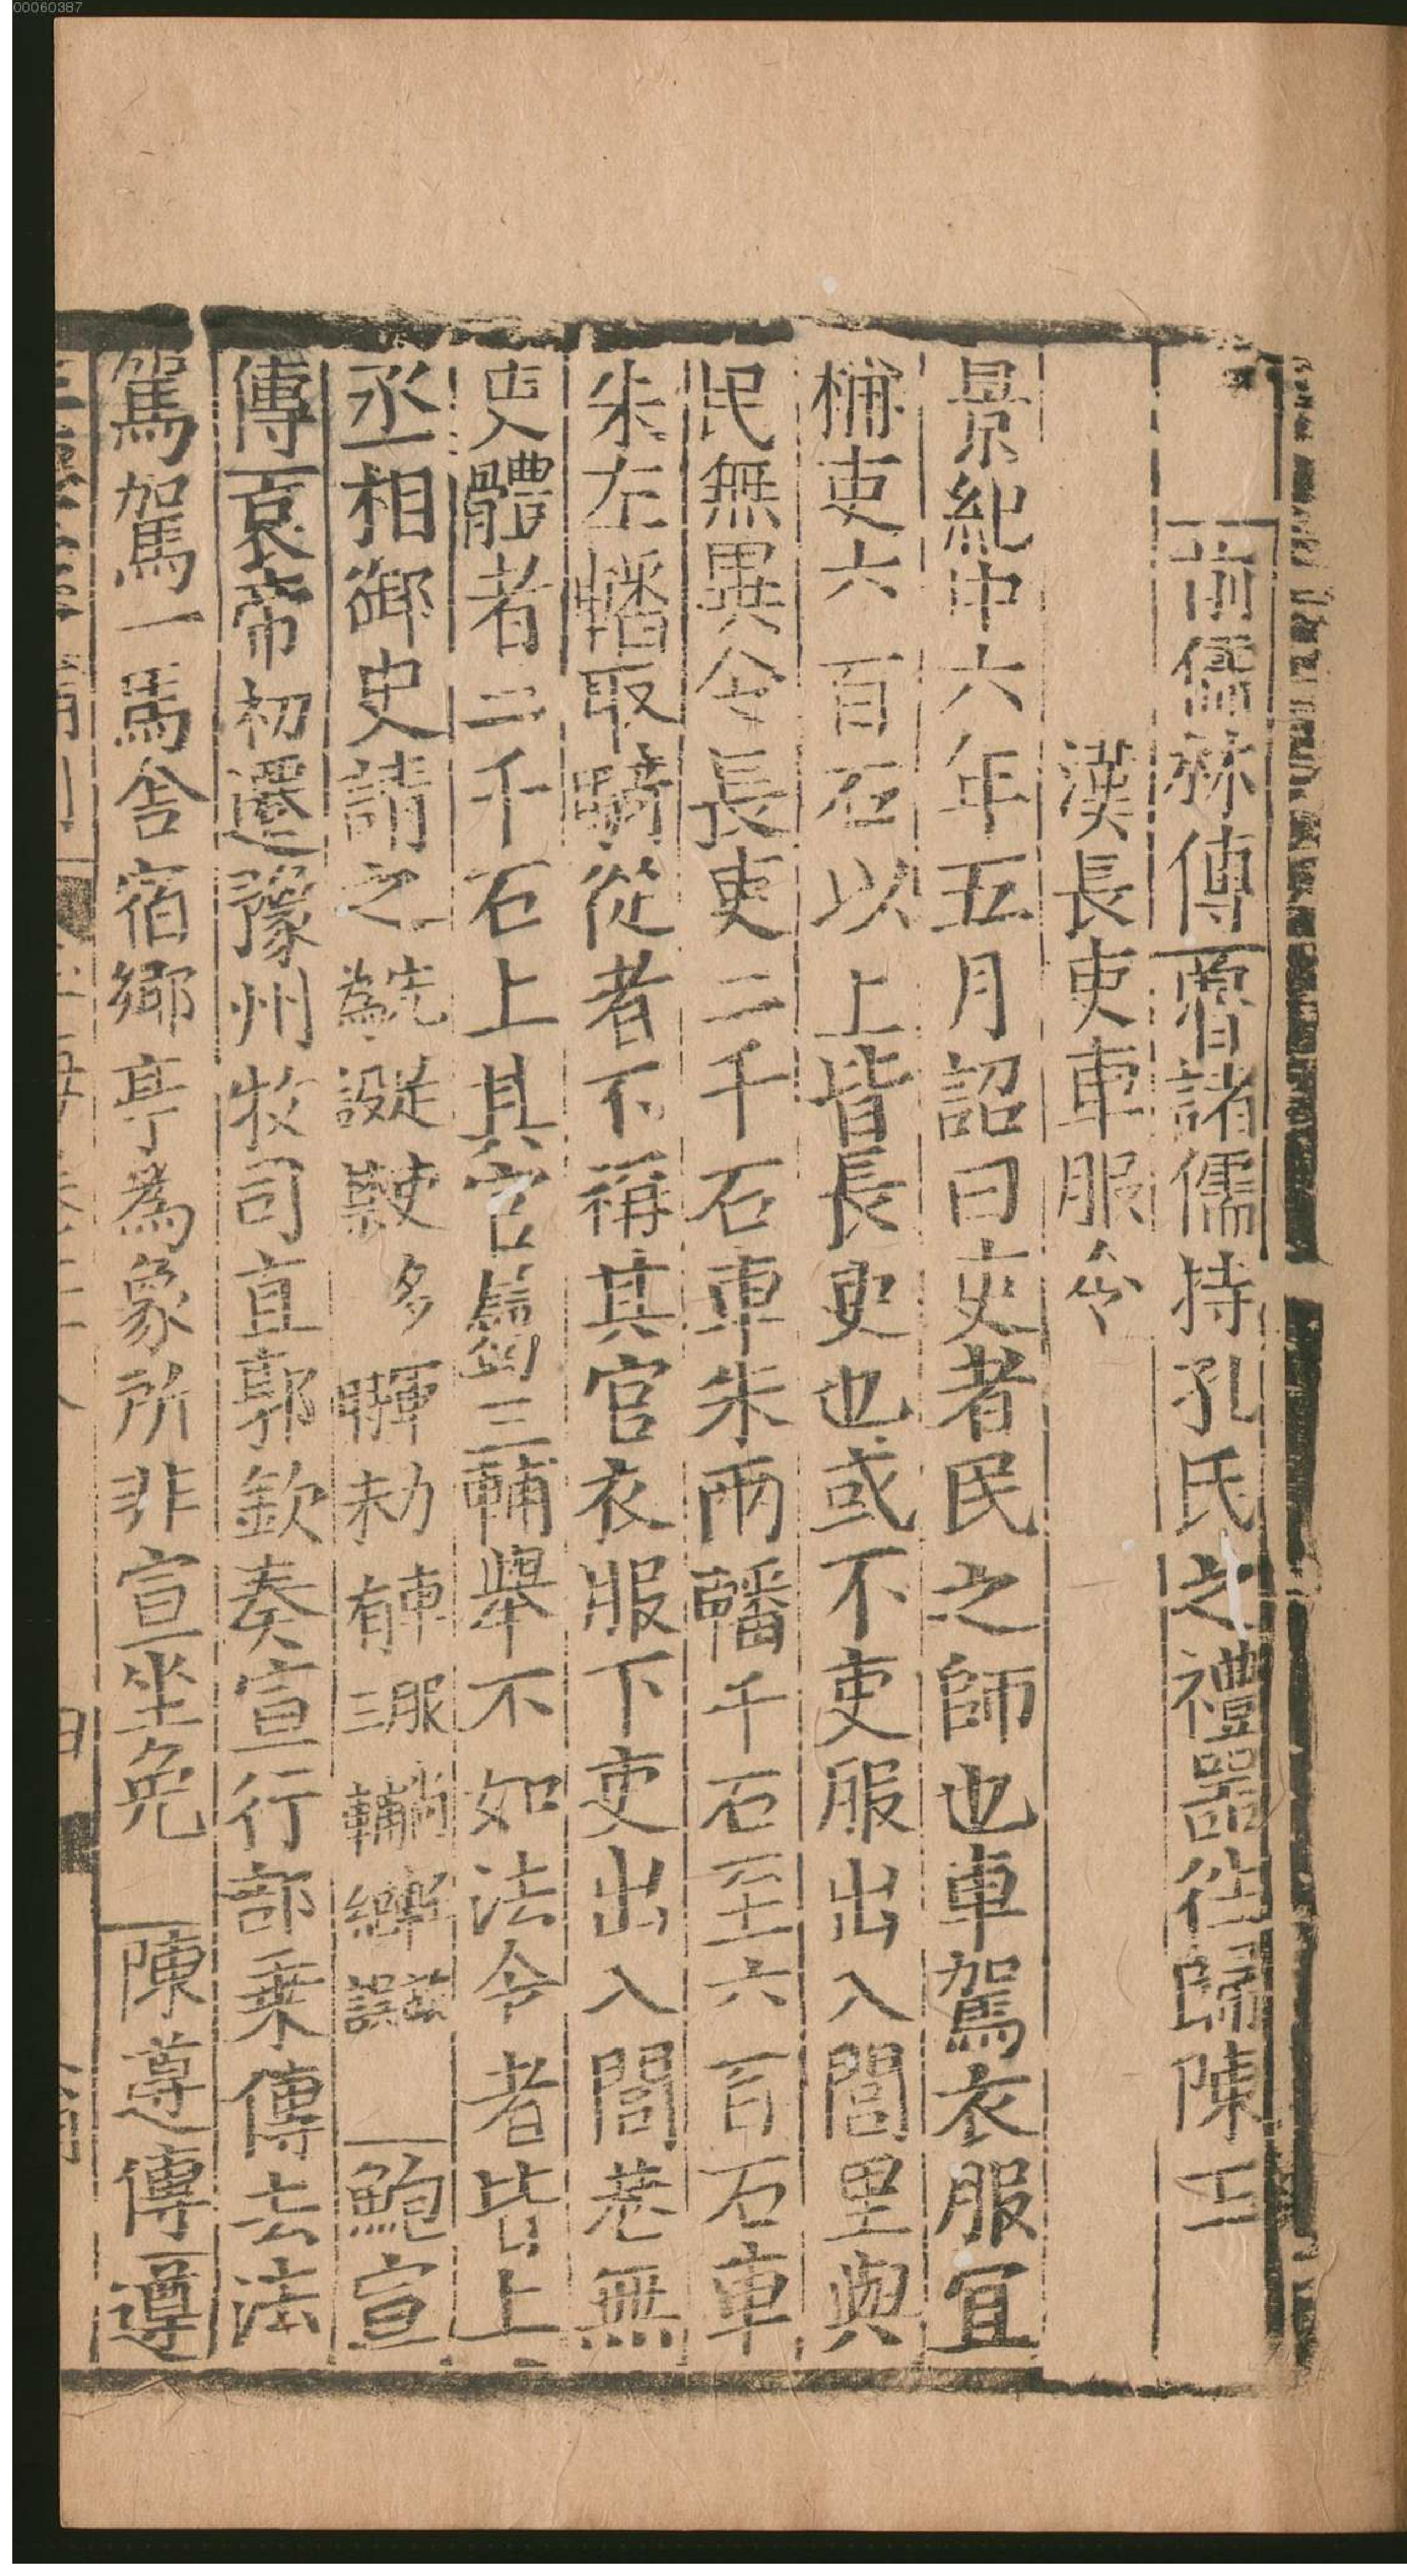 00060387
前儒林傳魯諸儒持孔氏之禮器往歸陳王
漢長吏車服令
景紀中六年五月詔曰吏者民之師也車駕衣服宜
稱吏六百石以上皆長吏也或不吏服出入閭里與
民無異令長吏二千石車朱兩轓千石至六百石車
朱左轓取騎從者不稱其官衣服下吏出入閭巷無
吏體者二千石上其官屬三輔舉不如法令者皆上
丞相御史請之先是吏多軍功車服尚輕
為設禁 三輔 鮑宣
傳哀帝初遷豫州牧司直郭欽奏宣行部乗傳去法
駕駕一馬舎宿鄉亭為衆所非宣坐免 陳遵傳遵